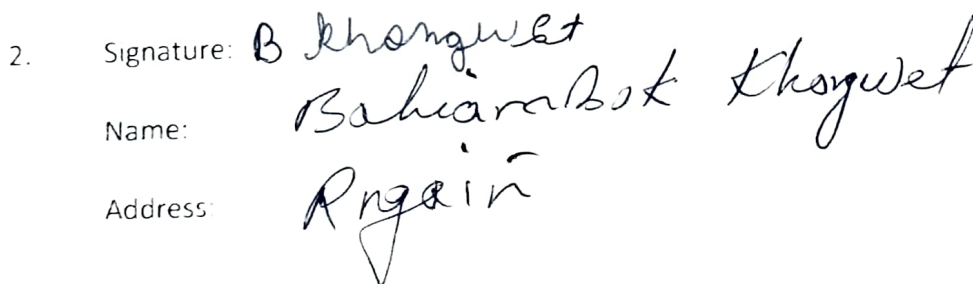 2. Signature: B Khongwet
Name: Bahiarabok Khongwet
Address: Rngaiñ